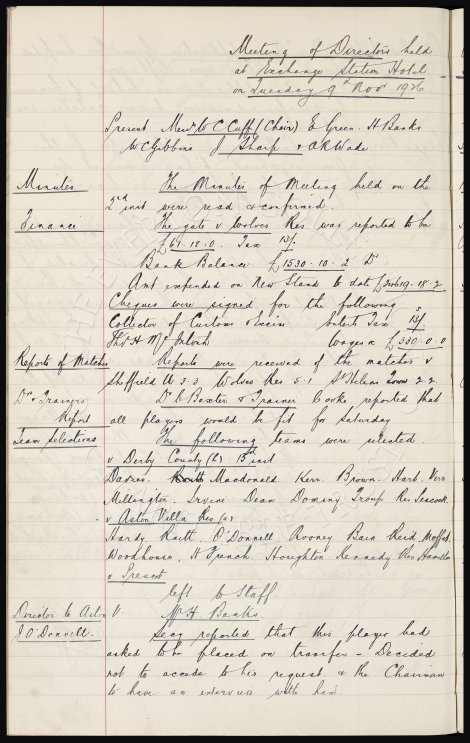 Meeting of Directors held
at Exchange Station Hotel
on Tuesday 9th Nov 1926
Present Messrs W C Cuff (Chair) E Green H Banks
W C Gibbins J Sharp & A R Wade
Minutes The Minutes of Meeting held on the
2nd inst were read & confirmed.
Finance The gate v Wolves Res was reported to be
£61.18.0. Tax
Bank Balance £1530.10.2 Dr
Amt expended on New Stand to date 19.18.2
Cheques were signed for the following
Collector of Customs & Excise Enterts Tax
Thos H McIntosh Wages £330.0.0
Reports of Matches Reports were received of the matches v
Sheffield U 3.3 Wolves Res 5.1 St Helens Town 2.2.
Drs & Trainers Dr C Baxter & Trainer Cooke reported that
Report all players would be fit for Saturday
Team Selections The following teams were selected
v Derby County (L) 13th inst
Davies. Raitt Macdonald. Kerr. Brown. Hart. Virr
Millington. Irvine Dean Dominy Troup Res Peacock
v Aston Villa Res (a)
Hardy Raitt. O'Donnell Rooney Bain Reid Moffat.
Woodhouse, H French. Houghton Kennedy Res Hamilton
v Prescot
left to Staff
Director to Aston V. Mr H. Banks.
J O'Donnell. Secy reported that this player had
asked to be placed on transfer - Decided
not to accede to his request & the Chairman
to have an interview with him